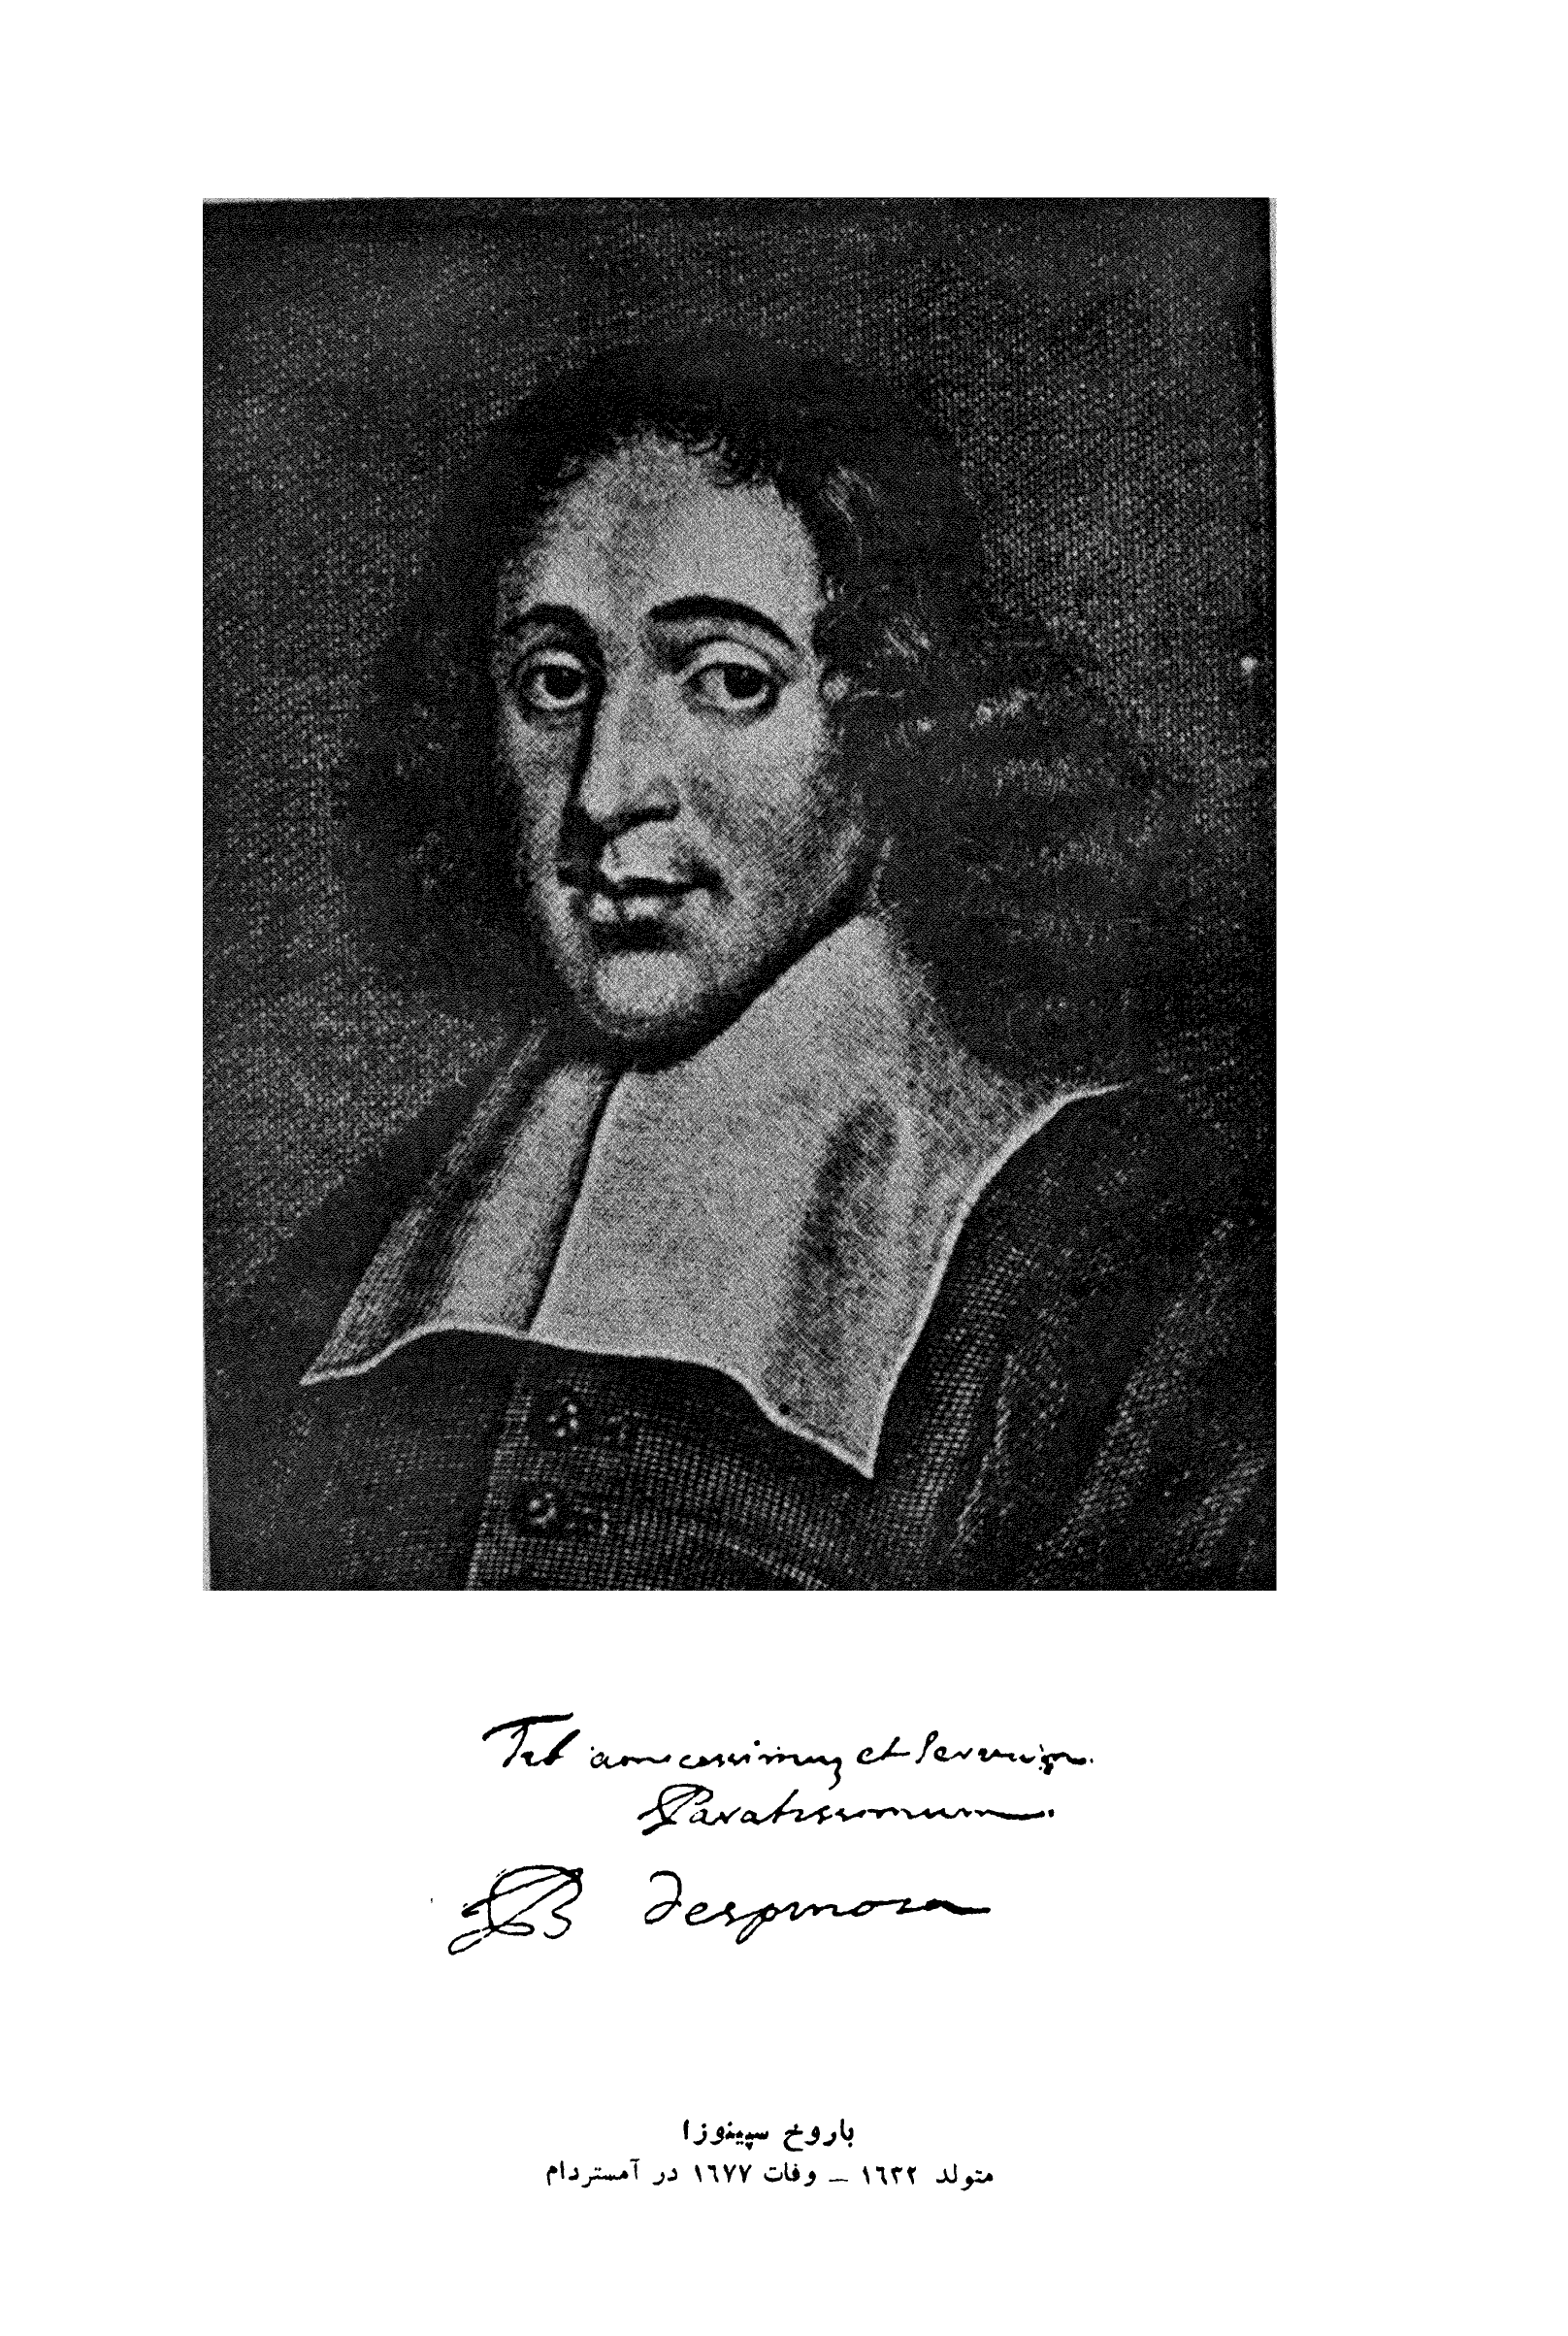 Tib amicissimus et serviri.
Paratissimum.
B despinoza
باروخ سپینوزا
متولد ١٦٣٢ – وفات ١٦٧٧ در آمستردام